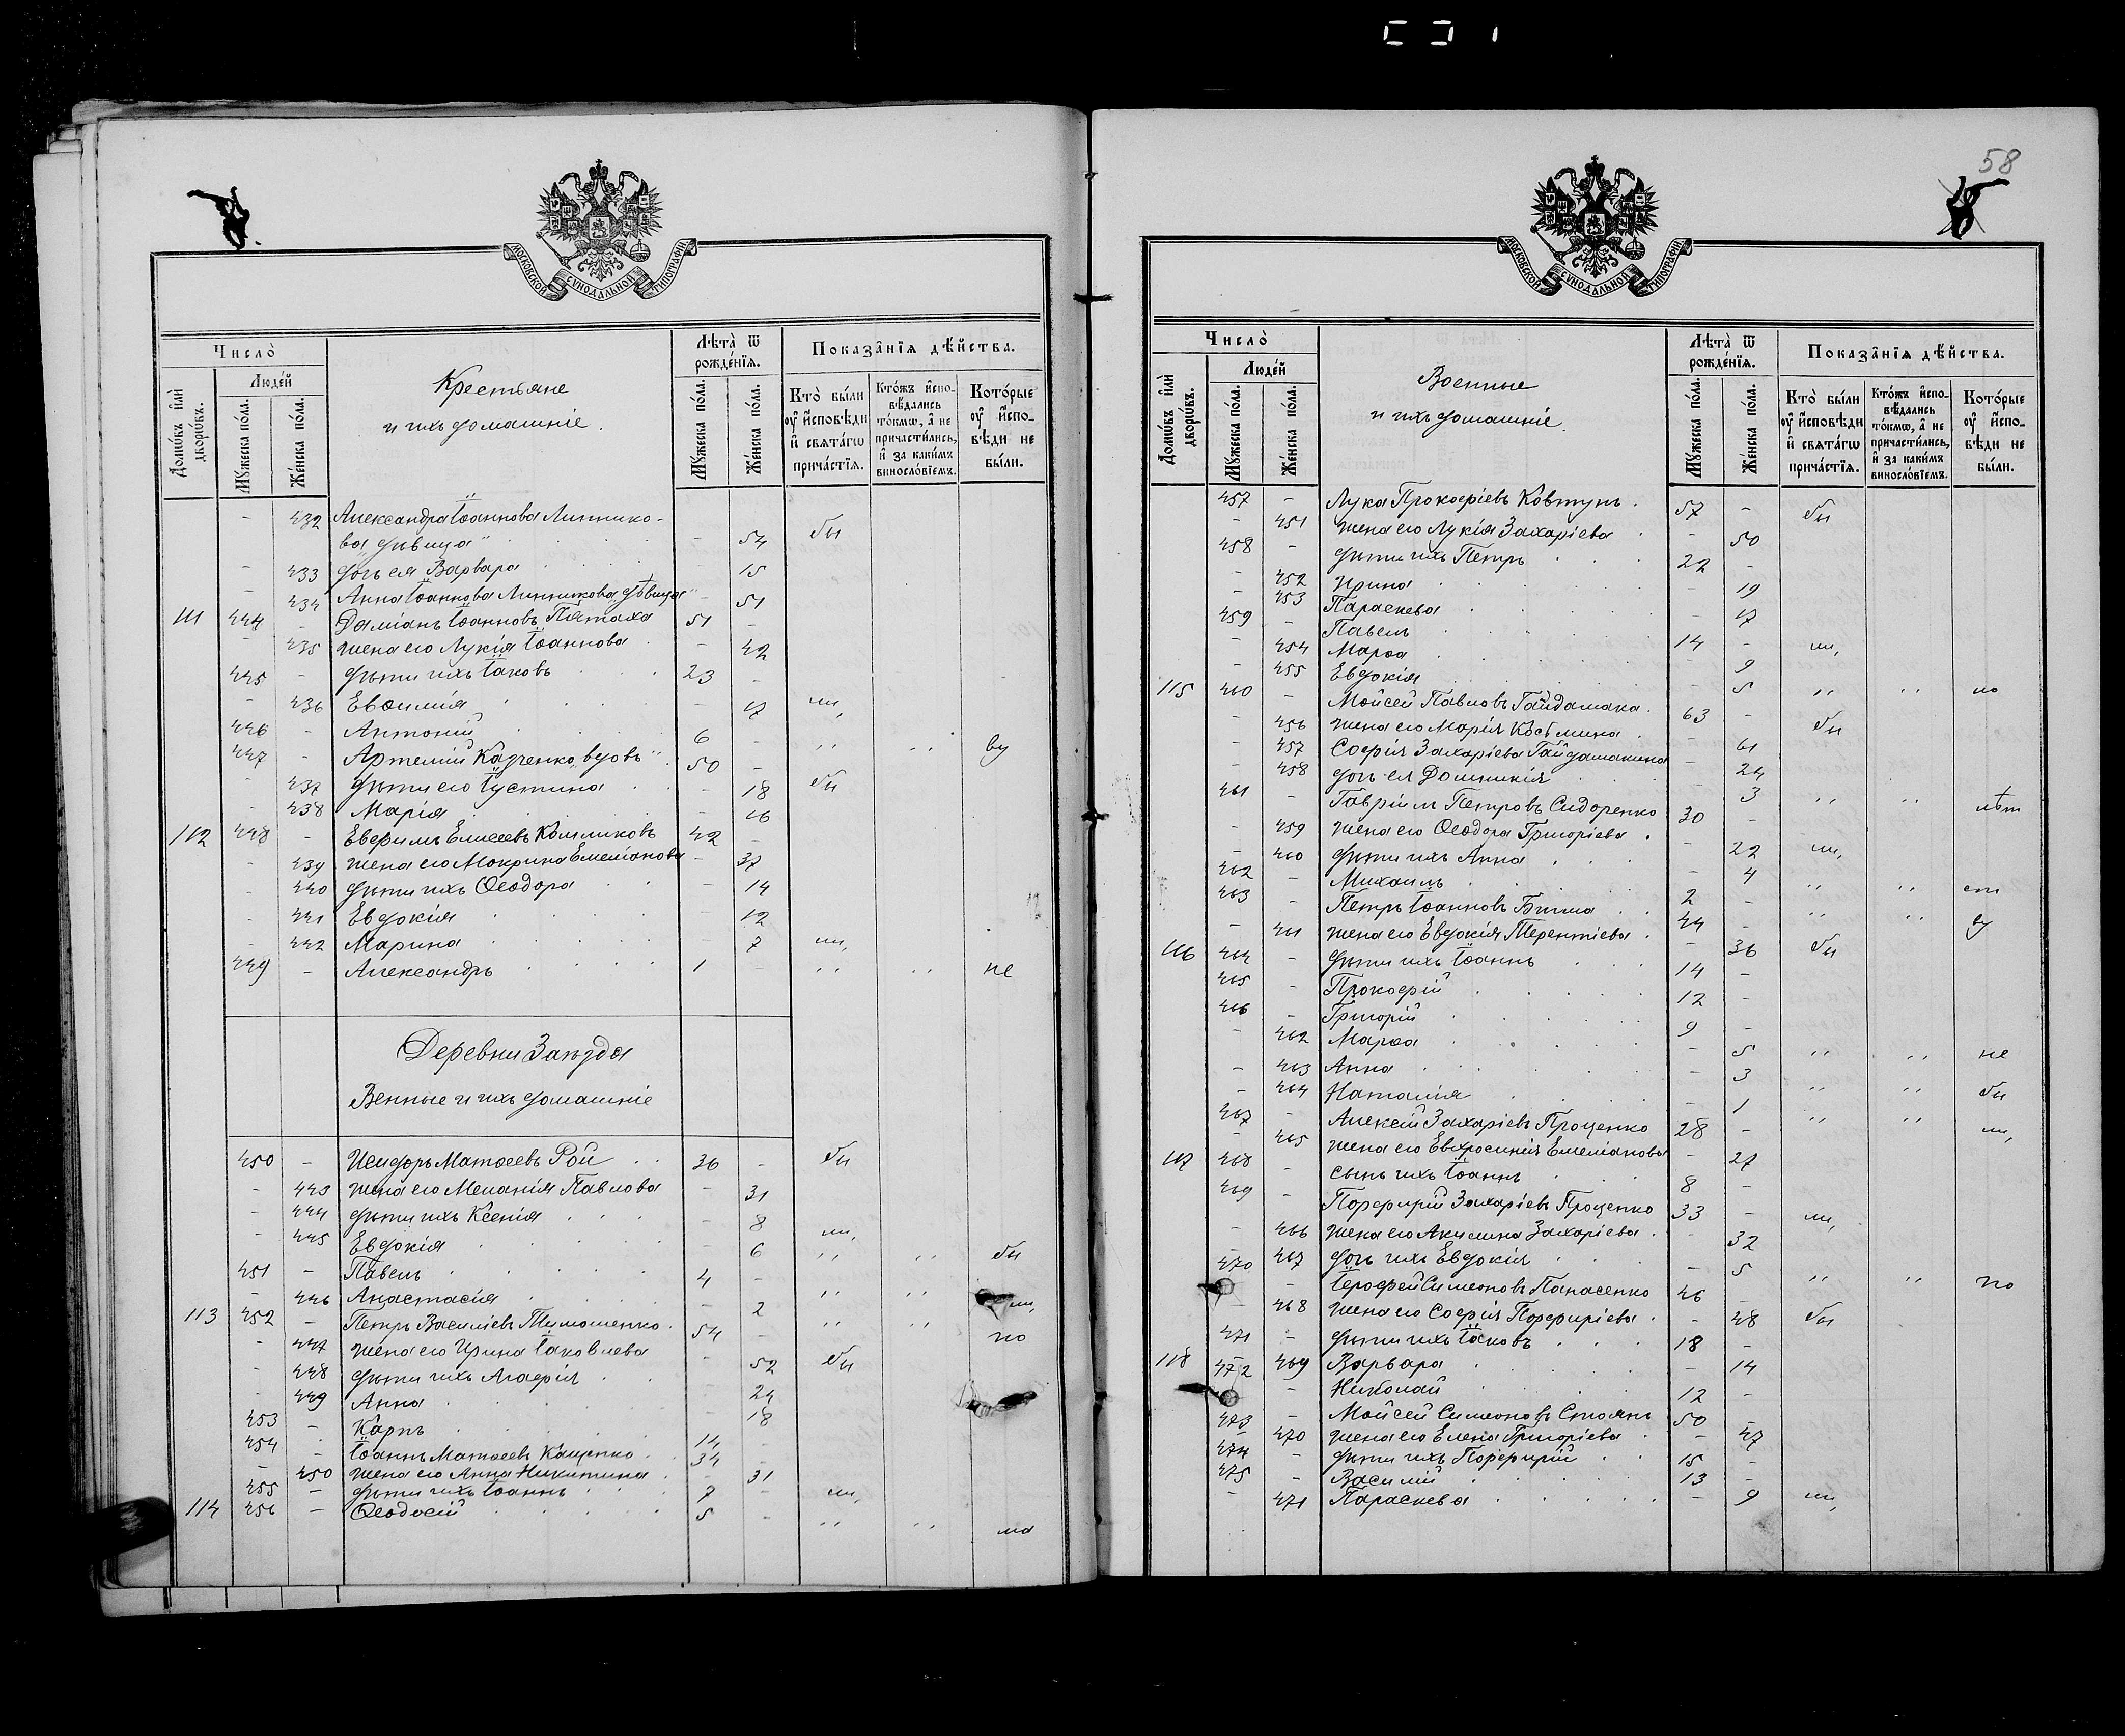 МОСКОВСКОЙ СѴНОДАЛЬНОЙ ТИПОГРАФІИ
Число̀
Людéй
Домѡ́въ и҆лѝ дворѡ́въ.
Мꙋ́жеска по́ла.
Же́нска по́ла.
Крестьяне
и ихъ домашніе.
Лѣта̀ ѿ рожде́нїѧ.
Мꙋ́жеска по́ла.
Же́нска по́ла.
Показа̑нїѧ дѣ́йства.
Кто̀ бы́ли ᲂу҆ и҆сповѣ́ди и҆ свѧта́гѡ прича́стїѧ.
Кто́жъ и҆сповѣ́дались то́кмѡ, а҆ не причасти́лись, и҆ за каки́мъ виносло́вїемъ.
Кото́рые ᲂу҆ и҆сповѣ́ди не бы́ли.
- 432 Александра Іоаннова Линнико-
ва „дѣвица“ - 54 бы
- 433 дочь ея Варвара 15
- 434 Анна Іоаннова Линникова „дѣвица“ - 51
111 444 - Даміанъ Іоанновъ Пятаха 51 -
- 435 жена его Лукія Іоаннова - 42
445 - дѣти ихъ Іаковъ 23 -
- 436 Евѳимія - 17 ли,
446 - Антоній 6 - ,, ,, ву
447 - Артемій Казченко „вдовъ“ 50 -
- 437 дѣти его Іустина - 18 бы
- 438 Марія - 16
112 448 - Евфимъ Елисеевъ Колпиковъ 42 -
- 439 жена его Мокрина Емеліанова - 37
- 440 дѣти ихъ Ѳеодора - 14
- 441 Евдокія 12
- 442 Марина - 7 ли,
449 - Александръ 1 - ,, ,, не
Деревни Заѣзда
Венные и ихъ домашніе
450 - Исидоръ Матѳеевъ Рой 36 - бы
- 443 жена его Меланія Павлова - 31
- 444 дѣти ихъ Ксенія - 8 ли,
- 445 Евдокія - 6 ,, ,, бы
451 - Павелъ 4 -
- 446 Анастасія - 2 ,, ,, ли,
113 452 - Петръ Василіевъ Тимошенко 54 - ,, ,, по
- 447 жена его Ирина Іаковлева - 52 бы
- 448 дѣти ихъ Агафія 24
- 449 Анна 18
453 - Карпъ 14 -
454 - Іоаннъ Матѳеевъ Кащенко 34 -
- 450 жена его Анна Никитина - 31
455 - дѣти ихъ Іоаннъ 7 - ли,
114 456 - Ѳеодосій 5 - ,, ,, ма
58
МОСКОВСКОЙ СѴНОДАЛЬНОЙ ТИПОГРАФІИ
Число̀
Людéй
Домѡ́въ и҆лѝ дворѡ́въ.
Мꙋ́жеска по́ла.
Же́нска по́ла.
Военные
и ихъ домашніе.
Лѣта̀ ѿ рожде́нїѧ.
Мꙋ́жеска по́ла.
Же́нска по́ла.
Показа̑нїѧ дѣ́йства.
Кто̀ бы́ли ᲂу҆ и҆сповѣ́ди и҆ свѧта́гѡ прича́стїѧ.
Кто́жъ и҆сповѣ́дались то́кмѡ, а҆ не причасти́лись, и҆ за каки́мъ виносло́вїемъ.
Кото́рые ᲂу҆ и҆сповѣ́ди не бы́ли.
457 - Лука Прокофіевъ Ковтунъ 57 - бы
- 451 жена его Лукія Захаріева - 50
458 - дѣти ихъ Петръ 22 -
- 452 Ирина - 19
453 Параскева - 17
459 - Павелъ 14 - ли,
- 454 Марѳа - 9
- 455 Евдокія - 5 ,, ,, по
115 460 - Мойсей Павловъ Гайдамака 63 - бы
- 456 жена его Марія Косьмина - 61
- 457 Софія Захаріева Гайдамакина - 24
- 458 дочь ея Домникія 3 ,, ,, лѣт
461 - Гавріилъ Петровъ Сидоренко 30 -
- 459 жена его Ѳеодора Григоріева - 22 ли,
- 460 дѣти ихъ Анна - 4 ,, ,, ст
462 - Михаилъ 2 - ,, ,, ву
463 - Петръ Іоанновъ Битма 44 -
- 461 жена его Евдокія Терентіева - 36 бы
116 464 - дѣти ихъ Іоаннъ 14 -
465 - Прокофій 12 -
466 - Григорій 9 -
- 462 Марѳа - 5 ,, ,, не
- 463 Анна - 3 ,, ,, бы
- 464 Наталія - 1 ,, ,, ли,
467 - Алексій Захаріевъ Проценко 28 -
- 465 жена его Евфросинія Емеліанова - 27
117 468 - сынъ ихъ Іоаннъ 8 -
469 - Порфирій Захаріевъ Проценко 33 - ли,
- 466 жена его Акилина Захаріева - 32
- 467 дочь ихъ Евдокія - 5 ,, ,, по
470 - Іерофей Симеоновъ Панасенко 46 -
- 468 жена его Софія Порфиріева - 48 бы
471 - дѣти ихъ Іаковъ 18 -
118 - 469 Варвара - 14
472 - Николай 12 -
473 - Мойсей Симеоновъ Стоянъ 50 -
- 470 жена его Елена Григоріева - 47
474 - дѣти ихъ Порфирій 15 -
475 - Василій 13 -
- 471 Параскева - 9 ли,